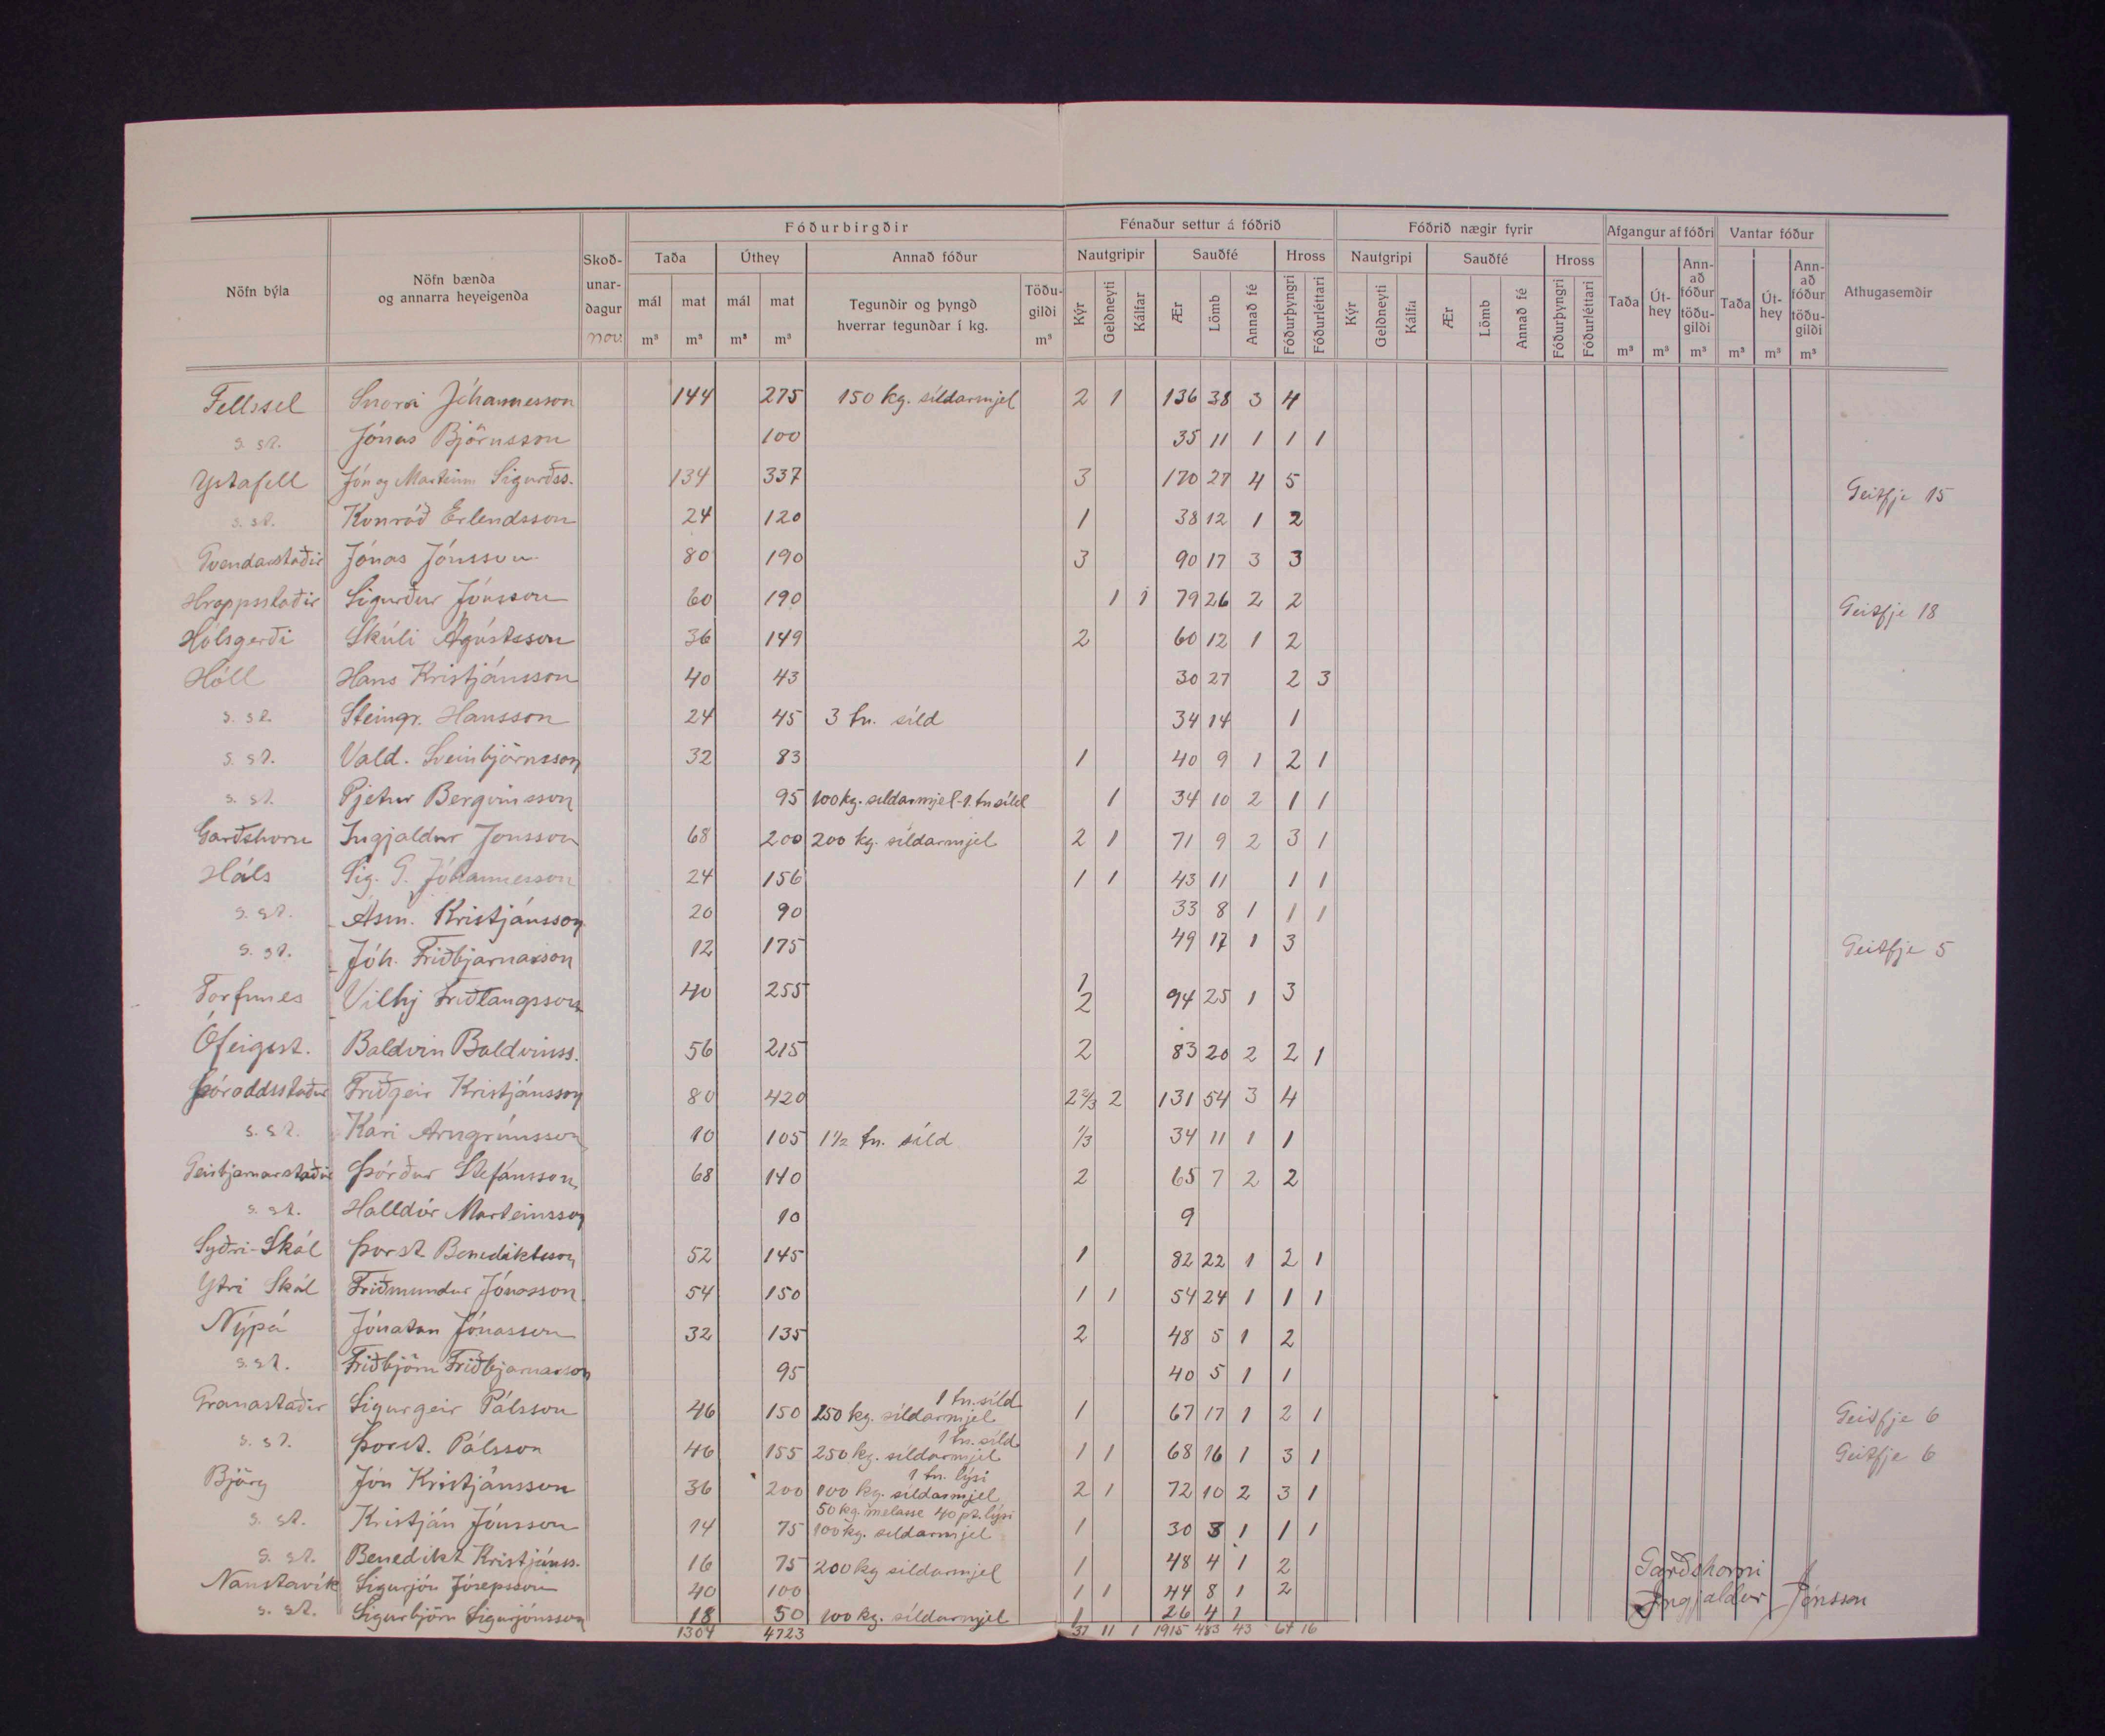 Fóðurbirgðir Fénaður settur á fóðrið Fóðrið nægir fyrir Afgangur af fóðri Vantar fóður
Nöfn býla Nöfn bænda og annarra heyeigenda Skoð-unar-dagur Nov. Taða Úthey Annað fóður Nautgripir Sauðfé Hross Nautgripi Sauðfé Hross Athugasemdir
mál m³ mat m³ mál m³ mat m³ Tegundir og þyngd hverrar tegundar í kg. Töðu-gildi m³ Kýr Geldneyti Kálfar Ær Lömb Annað fé Fóðurþyngri Fóðurléttari Kýr Geldneyti Kálfa Ær Lömb Annað fé Fóðurþyngri Fóðurléttari Taða m³ Út-hey m³ Ann-að fóður töðu-gildi m³ Taða m³ Út-hey m³ Ann-að fóður töðu-gildi m³
Fellssel Snorri Jóhannesson 144 275 150 kg. síldarmjel 2 1 136 38 3 4
s. st. Jónas Björnsson 100 35 11 1 1 1
Ystafell Jón og Marteinn Sigurðss. 134 337 3 170 27 4 5 Geitfje 15
s. st. Konráð Erlendsson 24 120 1 38 12 1 2
Gvendarstaðir Jónas Jónsson 80 190 3 90 17 3 3
Hrappsstaðir Sigurður Jónsson 60 190 1 1 79 26 2 2 Geitfje 18
Hólsgerði Skúli Ágústsson 36 149 2 60 12 1 2
Hóll Hans Kristjánsson 40 43 30 27 2 3
s. st. Steingr. Hansson 24 45 3 tn. síld 34 14 1
s. st. Vald. Sveinbjörnsson 32 83 1 40 9 1 2 1
s. st. Pjetur Bergvinsson 95 100 kg. síldarmjel - 1. tn síld 1 34 10 2 1 1
Garðshorn Ingjaldur Jónsson 68 200 200 kg. síldarmjel 2 1 71 9 2 3 1
Háls Sig. G. Jóhannesson 24 156 1 1 43 11 1 1
s. st. Ásm. Kristjánsson 20 90 33 8 1 1 1
s. st. Jóh. Friðbjarnarson 12 175 49 17 1 3 Geitfje 5
Torfunes Vilhj Friðlaugsson 40 255 1 2 94 25 1 3
Ófeigsst. Baldvin Baldvinss. 56 215 2 83 20 2 2 1
Þóroddsstaður Friðgeir Kristjánsson 80 420 2 2/3 2 131 54 3 4
s. st. Kári Arngrímsson 10 105 1 1/2 tn. síld 1/3 34 11 1 1
Geirbjarnarstaðir Þórður Stefánsson 68 140 2 65 7 2 2
s. st. Halldór Marteinsson 10 9
Syðri-Skál Þorst Benediktsson 52 145 1 82 22 1 2 1
Ytri Skál Friðmundur Jónasson 54 150 1 1 54 24 1 1 1
Nýpá Jónatan Jónasson 32 135 2 48 5 1 2
s. st. Friðbjörn Friðbjarnarson 95 40 5 1 1
Granastaðir Sigurgeir Pálsson 46 150 250 kg. síldarmjel 1 tn. síld 1 67 17 1 2 1 Geitfje 6
s. st. Þorst. Pálsson 46 155 250 kg. síldarmjel 1 tn. síld 1 1 68 16 1 3 1 Geitfje 6
Björg Jón Kristjánsson 36 200 100 kg. síldarmjel 1 tn. lýsi 2 1 72 10 2 3 1
s. st. Kristján Jónsson 14 75 50 kg. melasse 40 pt. lýsi 100 kg. síldarmjel 1 30 3 1 1 1
s. st. Benedikt Kristjánss. 16 75 200 kg síldarmjel 1 48 4 1 2
Naustavík Sigurjón Jósepsson 40 100 1 1 44 8 1 2
s. st. Sigurbjörn Sigurjónsson 18 50 100 kg. síldarmjel 1 26 4 1
1304 4723 37 11 1 1915 483 43 64 16
Garðshorni
Ingjaldur Jónsson